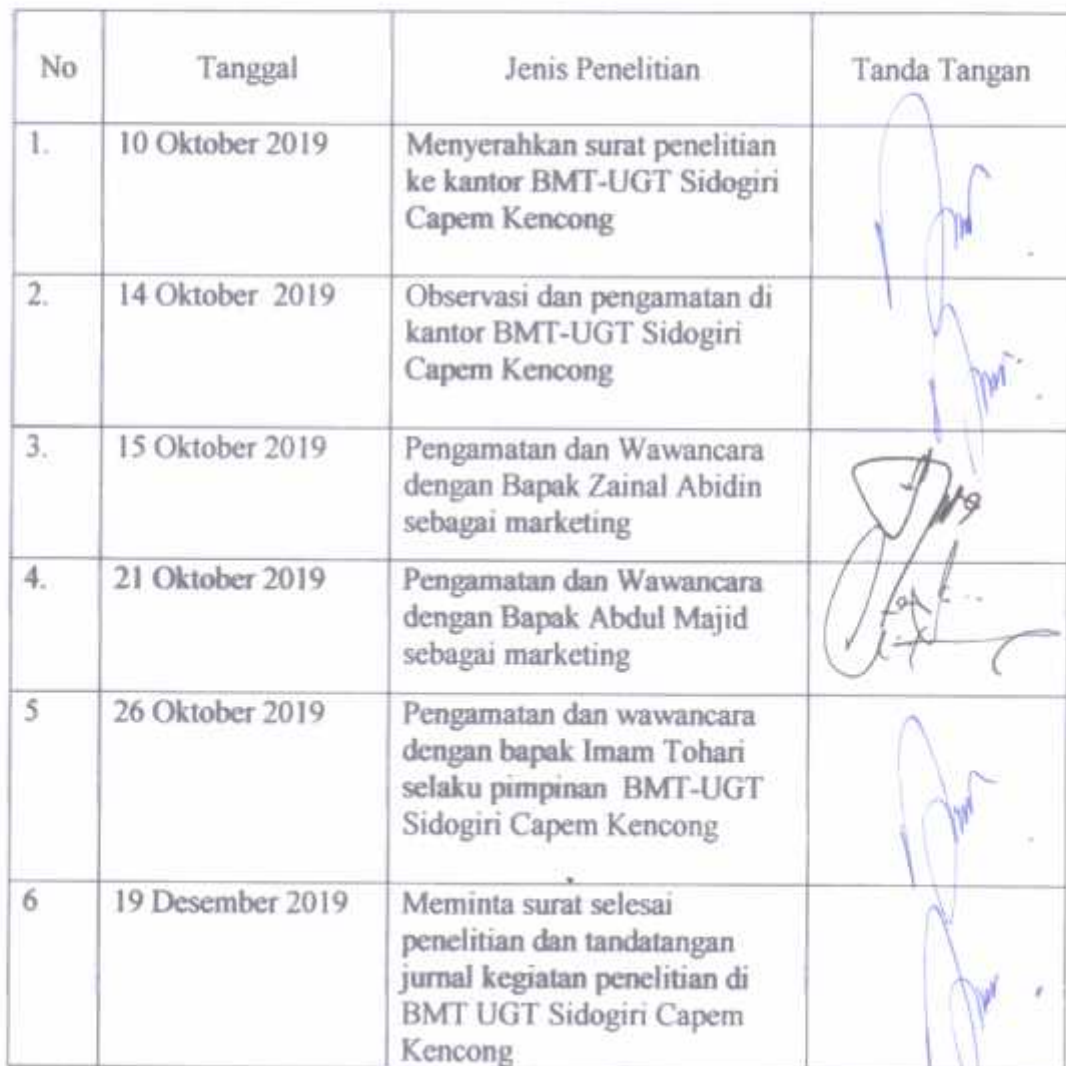 No Tanggal Jenis Penelitian Tanda Tangan
1. 10 Oktober 2019 Menyerahkan surat penelitian
ke kantor BMT-UGT Sidogiri
Capem Kencong
2. 14 Oktober 2019 Observasi dan pengamatan di
kantor BMT-UGT Sidogiri
Capem Kencong
3. 15 Oktober 2019 Pengamatan dan Wawancara
dengan Bapak Zainal Abidin
sebagai marketing
4. 21 Oktober 2019 Pengamatan dan Wawancara
dengan Bapak Abdul Majid
sebagai marketing
5 26 Oktober 2019 Pengamatan dan wawancara
dengan bapak Imam Tohari
selaku pimpinan BMT-UGT
Sidogiri Capem Kencong
6 19 Desember 2019 Meminta surat selesai
penelitian dan tandatangan
jurnal kegiatan penelitian di
BMT UGT Sidogiri Capem
Kencong